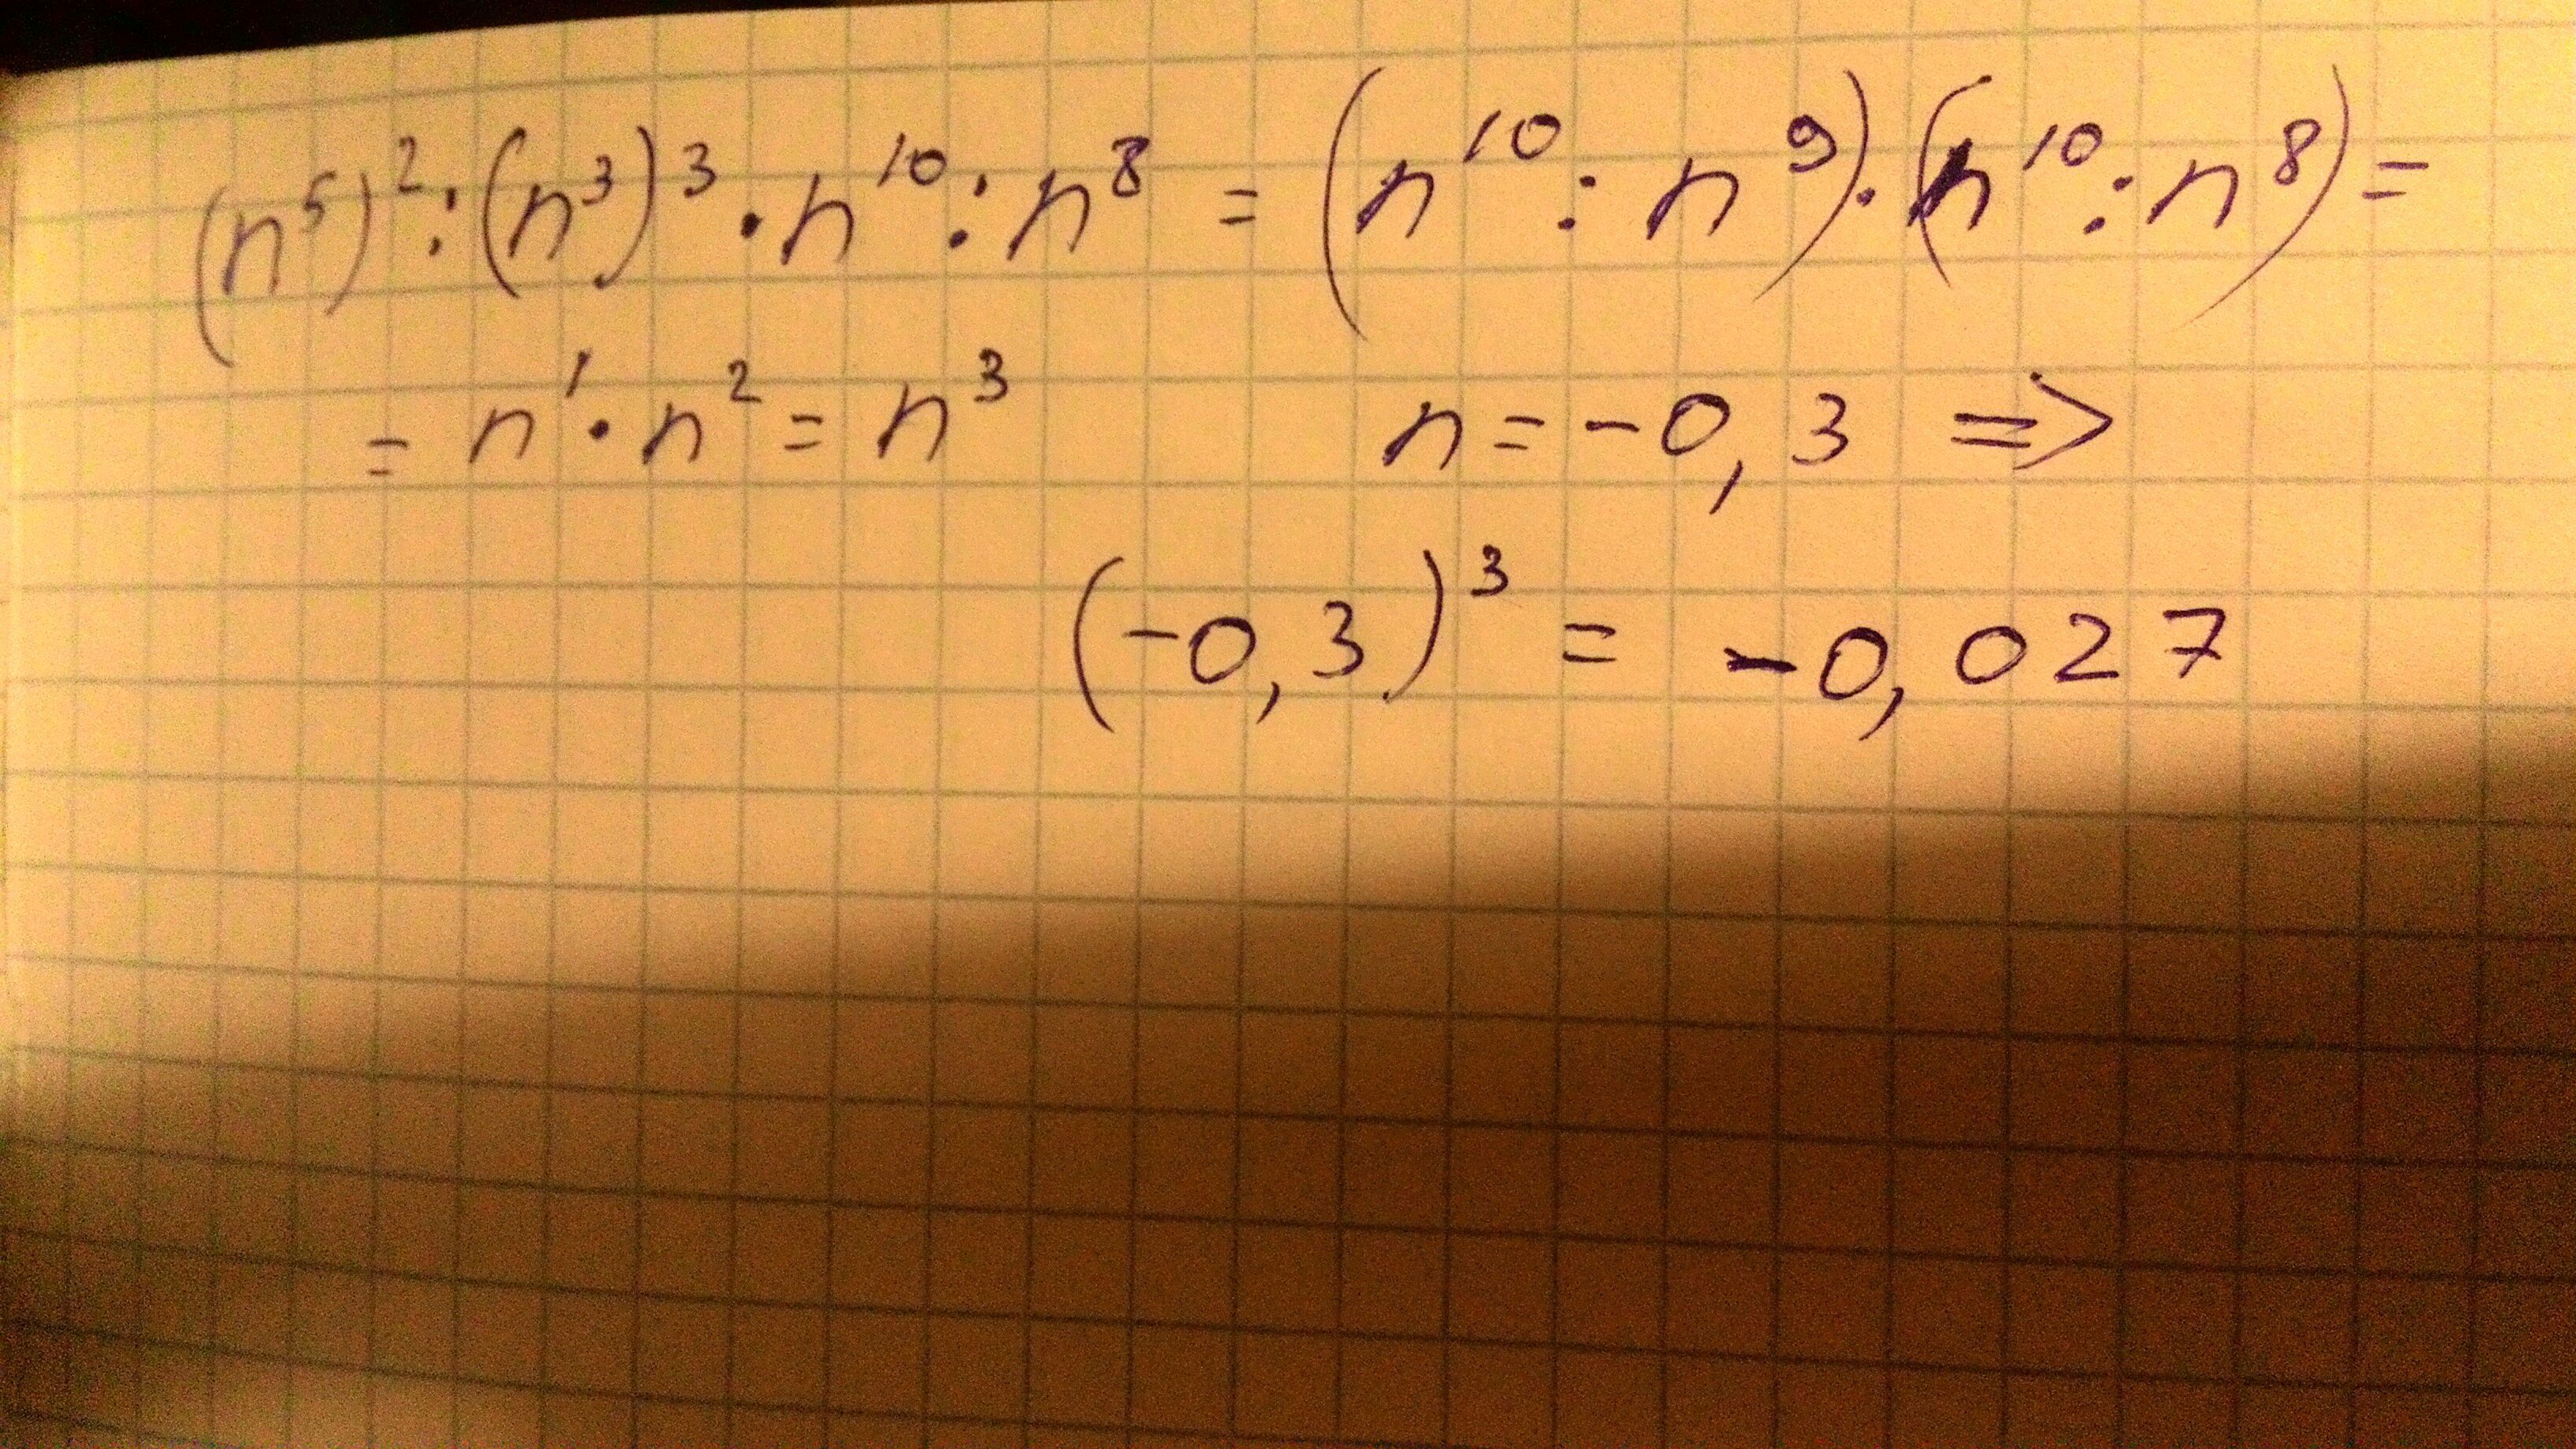 (n⁵)² : (n³)³ · n¹⁰ : n⁸ = (n¹⁰ : n⁹) · (n¹⁰ : n⁸) =
= n¹ · n² = n³ n = -0,3 =>
(-0,3)³ = -0,027